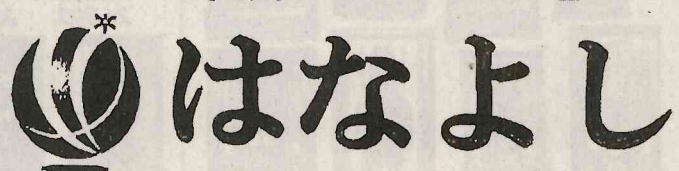 はなよし